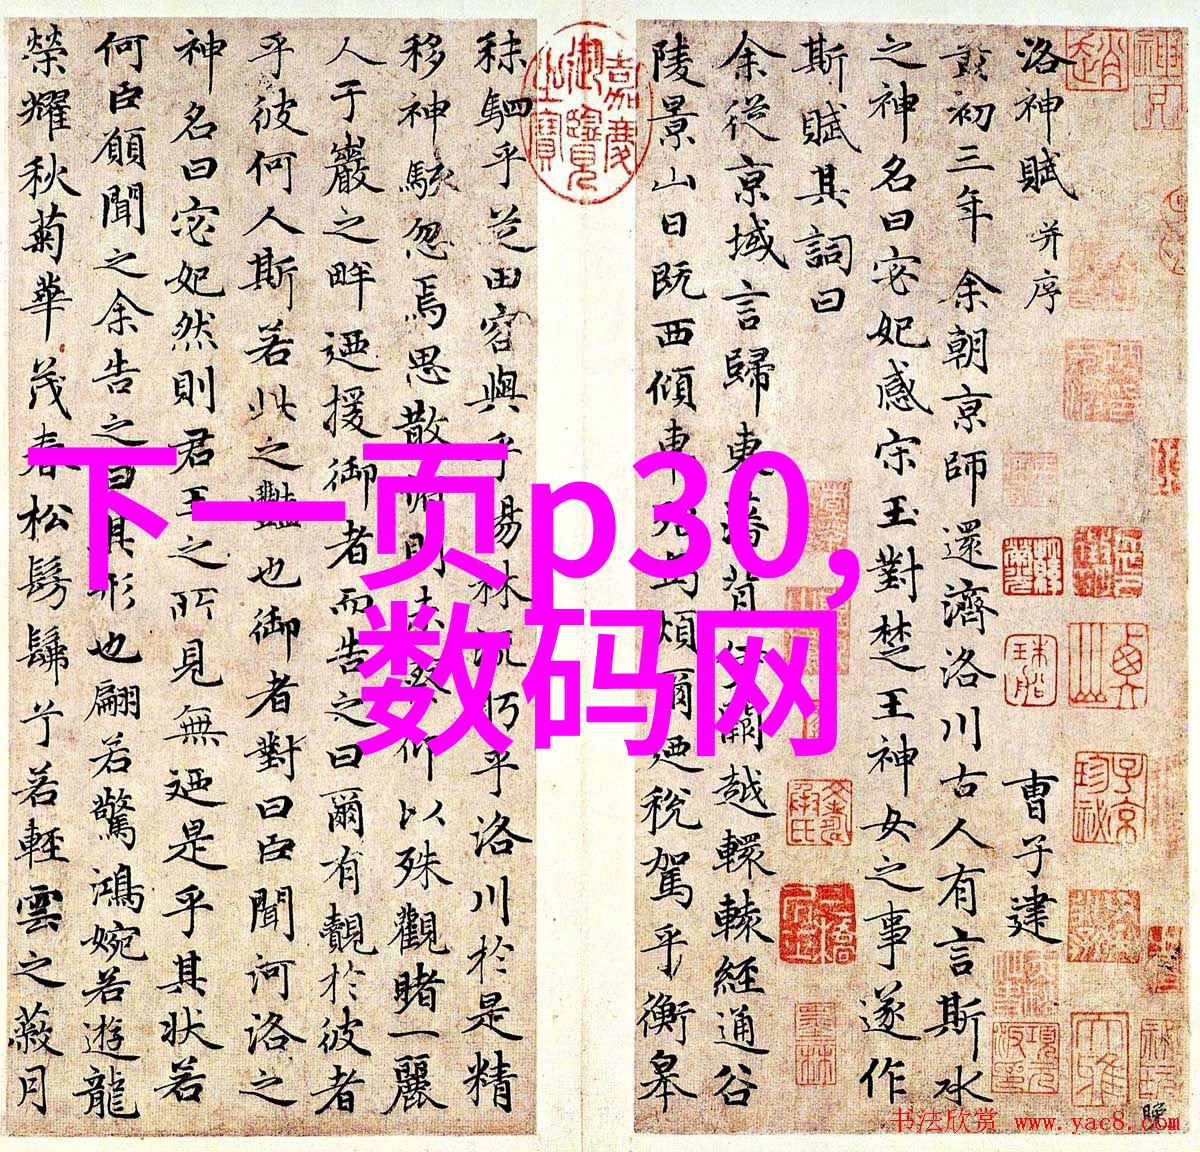 洛神賦 并序 曹子建
黃初三年余朝京師還濟洛川古人有言斯水
之神名曰宓妃感宋玉對楚王神女之事遂作
斯賦其詞曰
余從京域言歸東藩背伊闕越轘轅經通谷
陵景山日既西傾車殆馬煩爾迺稅駕乎衡皋
嘉慶御覽之寶
秣駟乎芝田容與乎楊林流眄乎洛川於是精
移神駭忽焉思散俯則未察仰以殊觀睹一麗
人于巖之畔迺援御者而告之曰爾有覿於彼者
乎彼何人斯若此之豔也御者對曰臣聞河洛之
神名曰宓妃然則君王之所見無迺是乎其狀若
何臣願聞之余告之曰其形也翩若驚鴻婉若遊龍
榮耀秋菊華茂春松髣髴兮若輕雲之蔽月
下一页p30,
数码网
书法欣赏 www.yac8.com